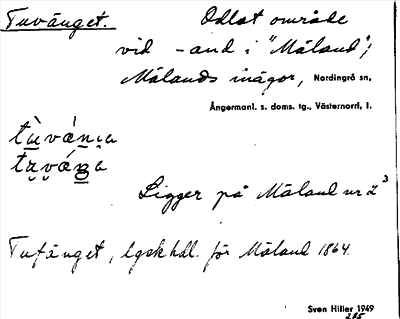 Tuvänget. Odlat område
vid -and i "Måland";
Målands inägor, Nordingrå sn,
Ångermanl. s. doms. tg., Västernorrl, l.
Ligger på Måland nr 2³
Tufänget, lgskhdl. för Måland 1864.
Sven Hiller 1949
285